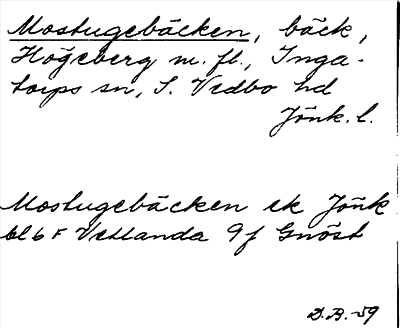 Mostugebäcken, bäck,
Högeberg m. fl., Inga-
torps sn, S. Vedbo hd
Jönk. l.
Mostugebäcken ek Jönk
bl 6 F Vetlanda 9 f Gnöst
D.B.-59